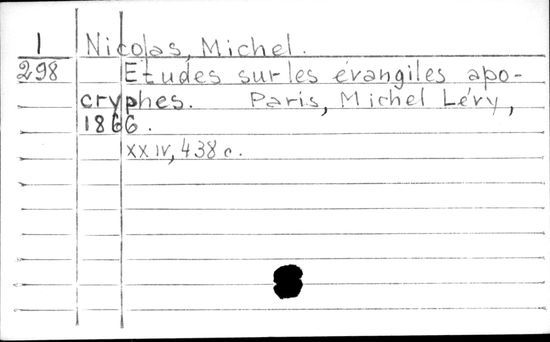 1 Nicolas, Michel.
298 Etudes sur les évangiles apo-
cryphes. Paris, Michel Lévy,
1866.
XXIV, 438 c.